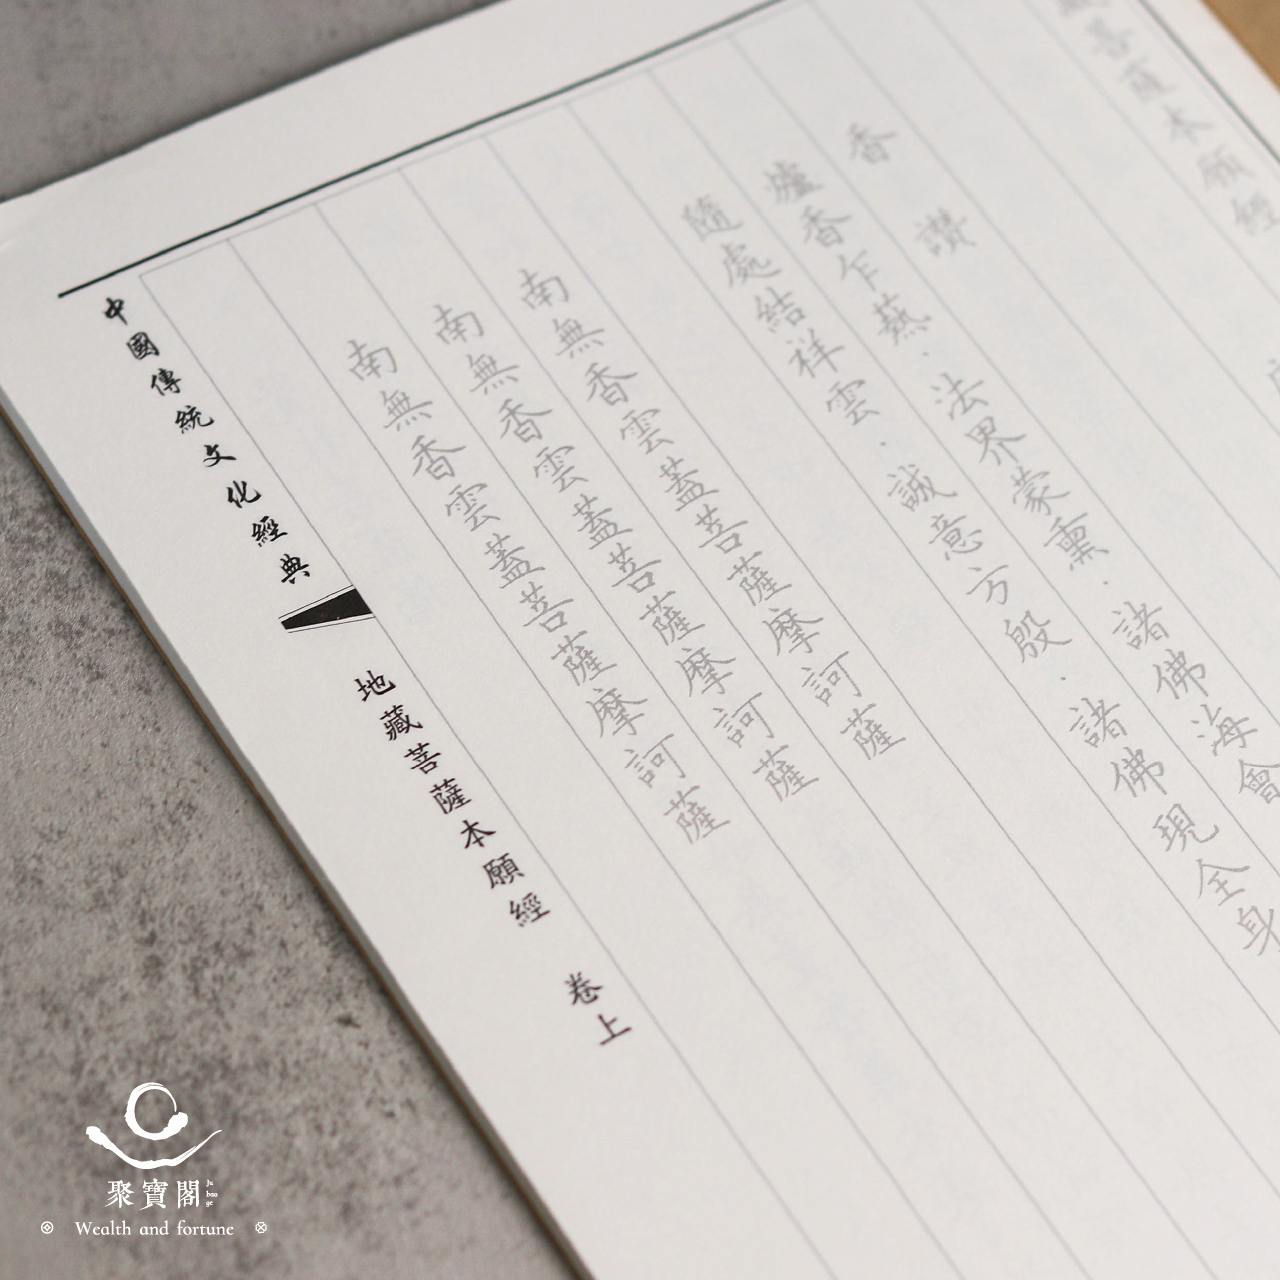 菩薩本願經
香讚
爐香乍爇．法界蒙熏．諸佛海會
隨處結祥雲．誠意方殷．諸佛現全身
南無香雲蓋菩薩摩訶薩
南無香雲蓋菩薩摩訶薩
南無香雲蓋菩薩摩訶薩
中國傳統文化經典
地藏菩薩本願經 卷上
聚寶閣
Ju bao ge
Wealth and fortune